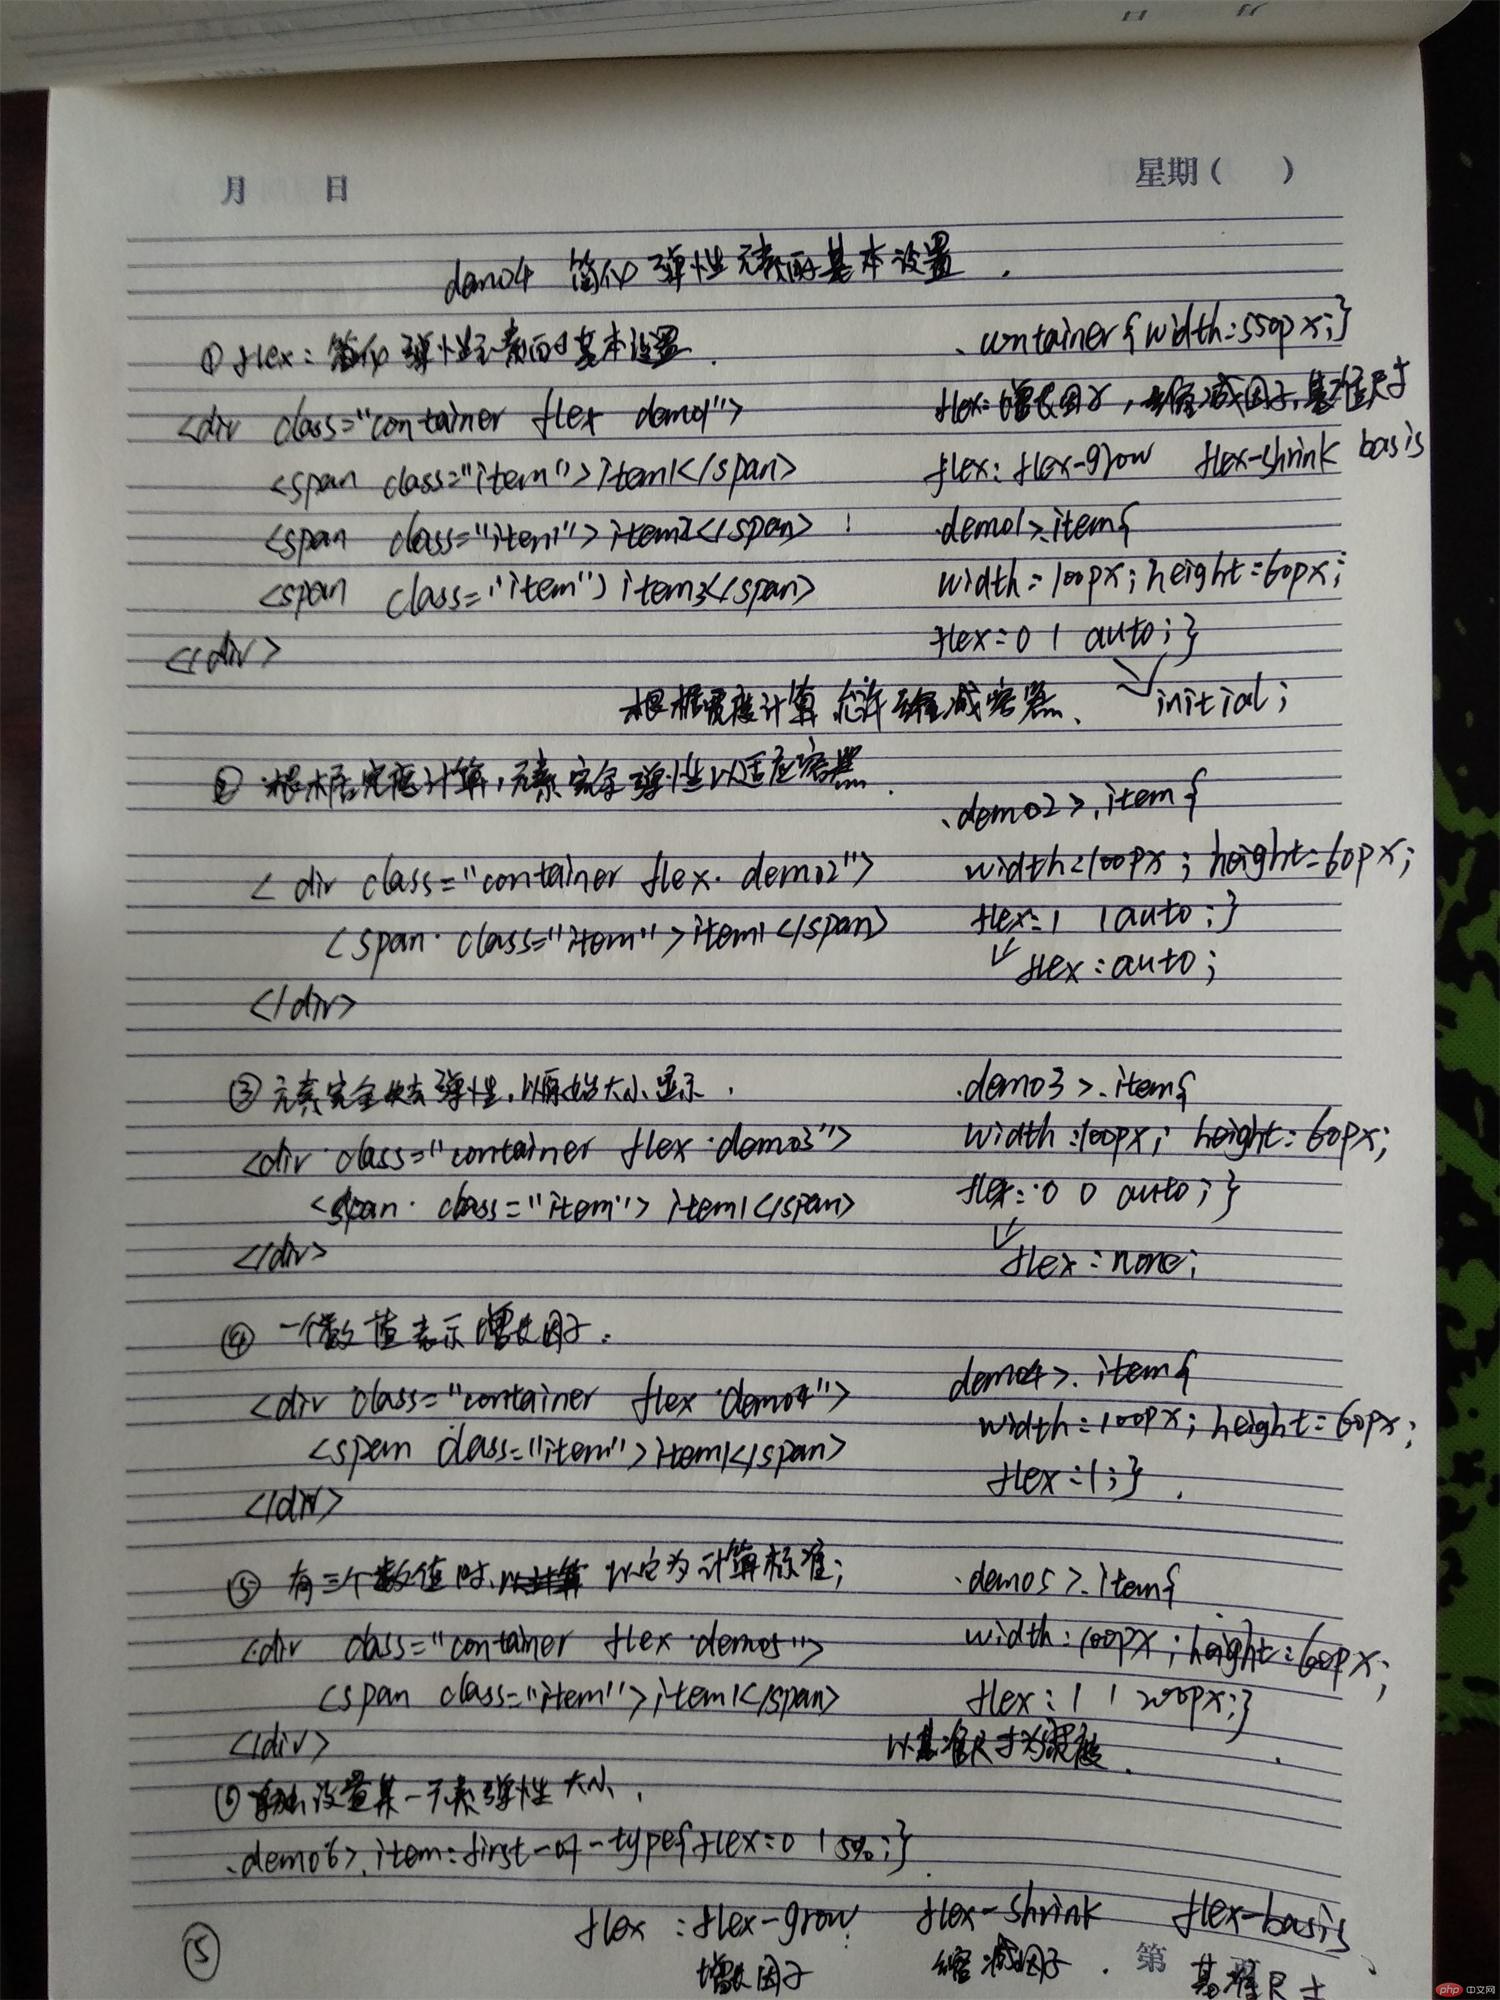 月 日 星期( )
demo4 简化弹性元素的基本设置.
① flex: 简化弹性元素的基本设置.
.container{width:550px;}
<div class="container flex demo1">
flex: 增长因子, 缩减因子, 基准尺寸
<span class="item">item1</span>
flex: flex-grow flex-shrink basis
<span class="item">item2</span>
.demo1>.item{
<span class="item">item3</span>
width:100px; height:60px;
flex:0 1 auto;}
</div>
根据宽度计算 允许缩减容器. initial;
② 根据宽度计算, 元素完全弹性以适应容器.
.demo2>.item{
<div class="container flex demo2">
width:100px; height:60px;
<span class="item">item1</span>
flex:1 1 auto;}
flex:auto;
</div>
③ 元素完全失去弹性, 以原始大小显示.
.demo3>.item{
<div class="container flex demo3">
width:100px; height:60px;
<span class="item">item1</span>
flex:0 0 auto;}
</div>
flex:none;
④ 一个数值表示增长因子.
demo4>.item{
<div class="container flex demo4">
width:100px; height:60px;
<span class="item">item1</span>
flex:1;}
</div>
⑤ 有三个数值时, 以计算 以它为计算标准;
.demo5>.item{
<div class="container flex demo5">
width:100px; height:60px;
<span class="item">item1</span>
flex:1 1 200px;}
</div>
以基准尺寸为宽度.
⑥ 设置某一元素弹性大小.
.demo6>.item:first-of-type{flex:0 1 5%;}
flex: flex-grow flex-shrink flex-basis
⑤ 增长因子 缩减因子. 第 基准尺寸
php 中文网